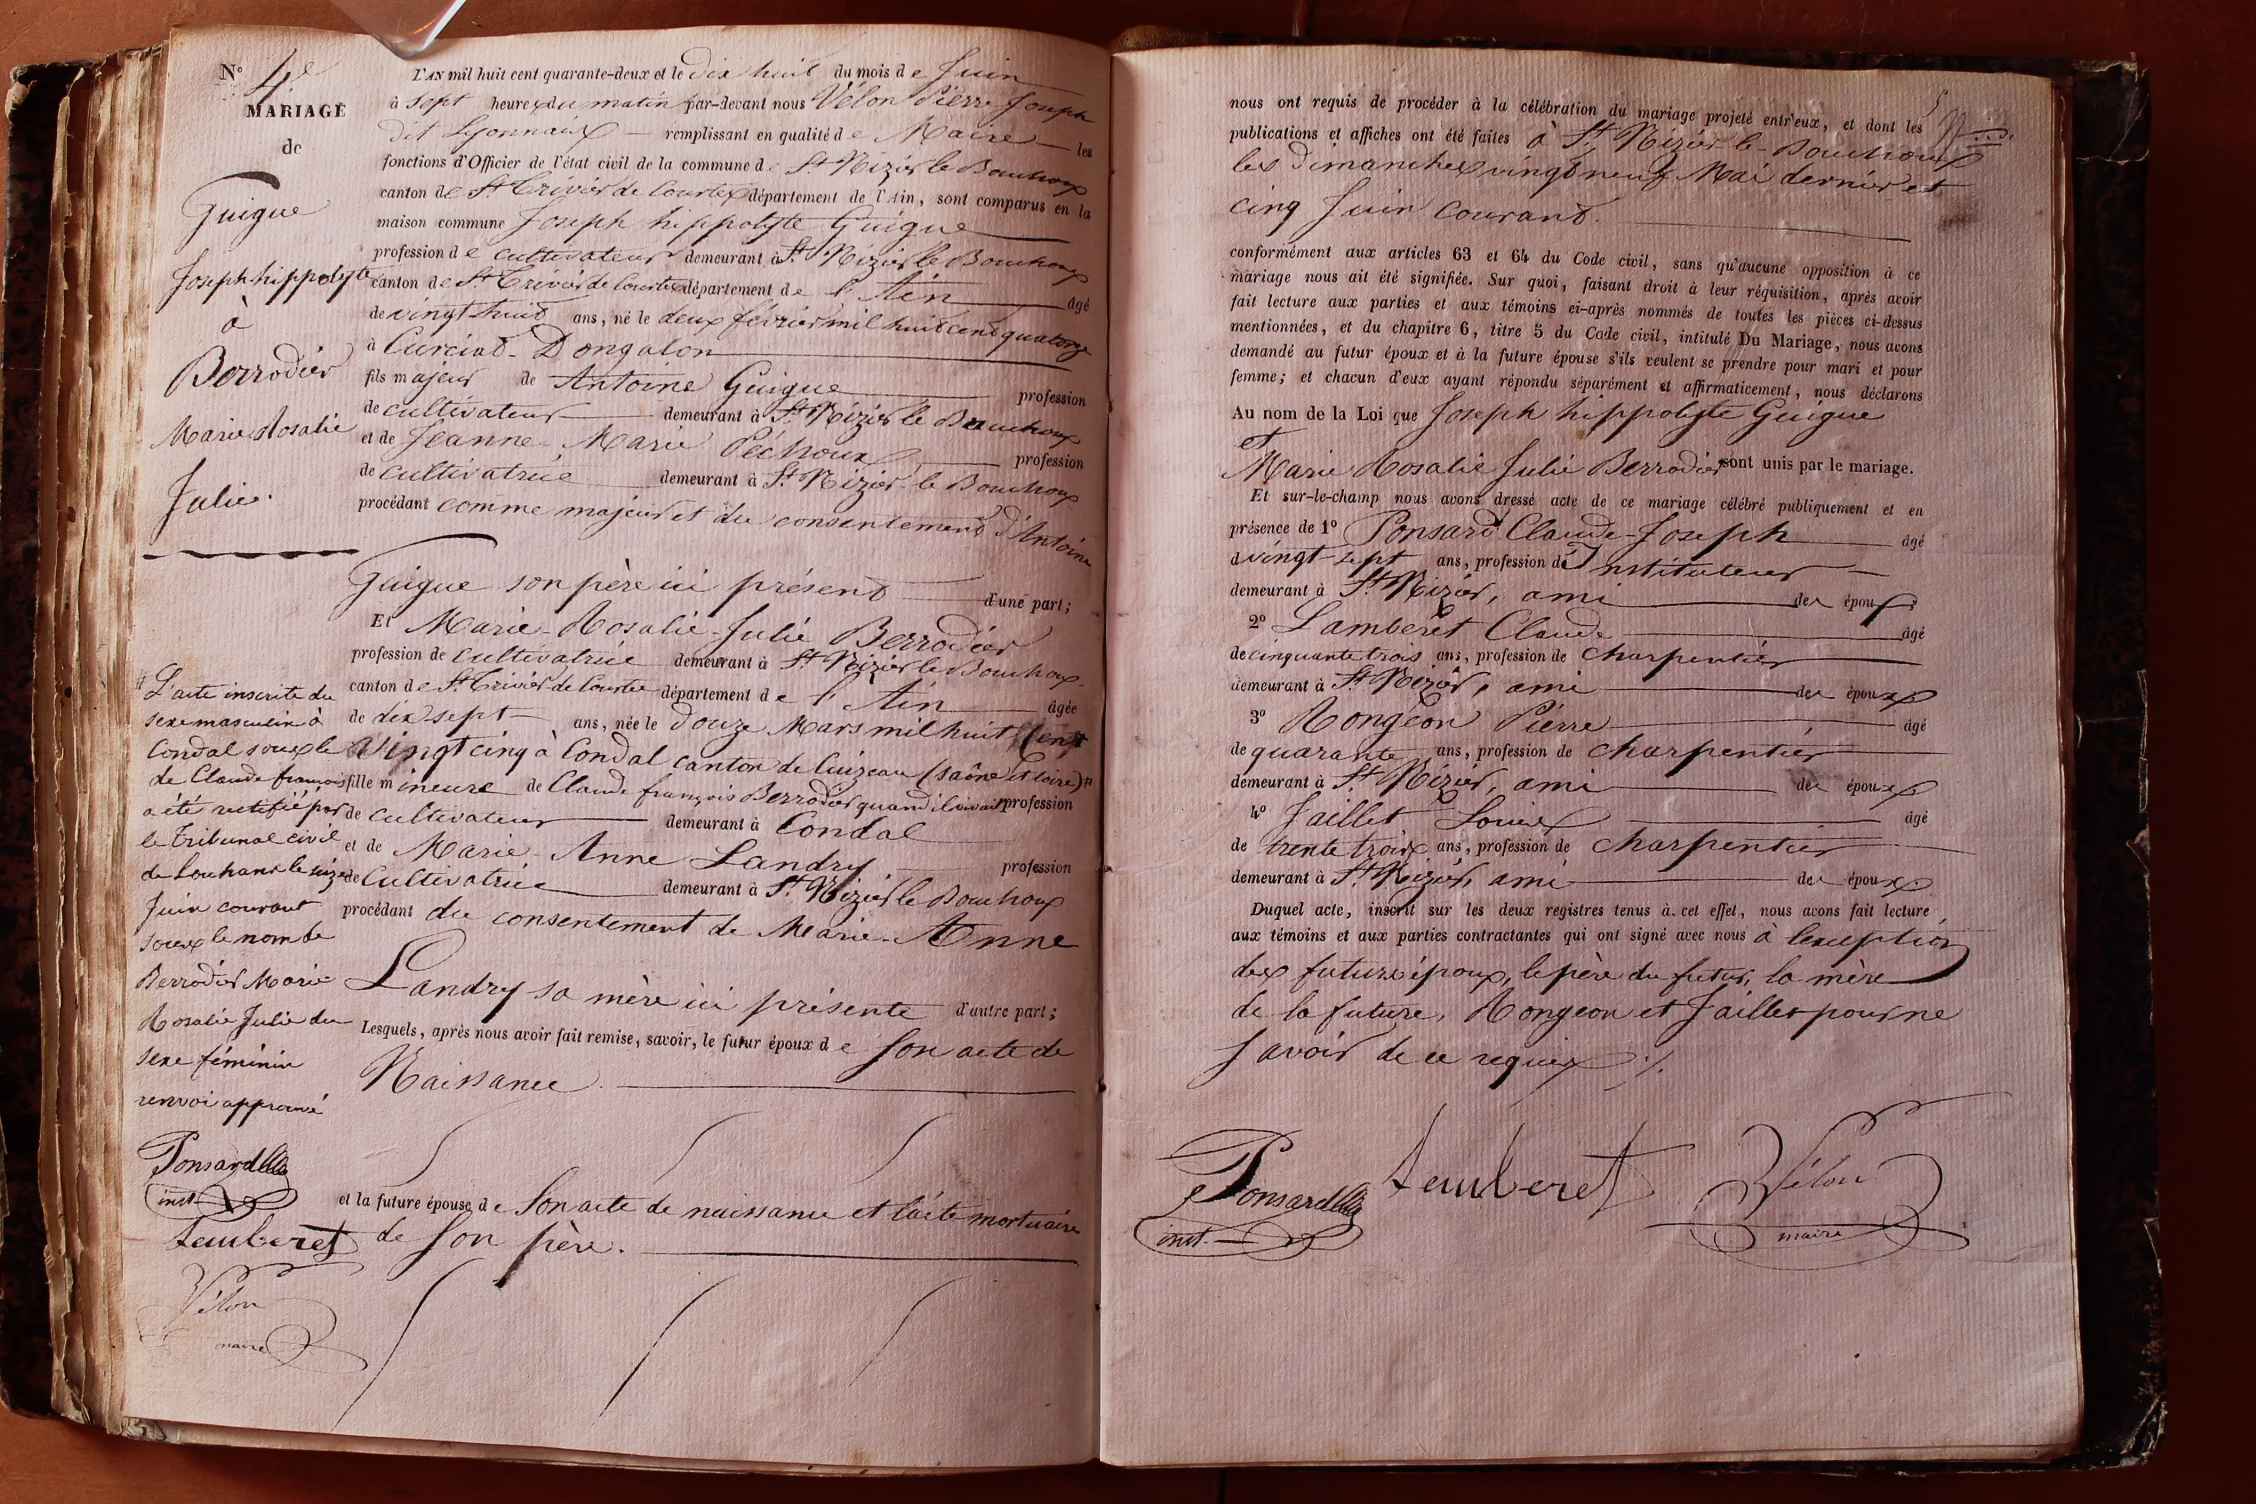 N° 4e
MARIAGE
de
Guigue
Joseph hippolyte
à
Berrodier
Marie Rosalie
Julie.
L'AN mil huit cent quarante-deux et le dix huit du mois de Juin
à sept heures du matin par-devant nous Vélon Pierre Joseph
dit Lyonnais remplissant en qualité de Maire les
fonctions d'Officier de l'état civil de la commune de St Nizier le Bouchoux
canton de St Trivier de Courtes département de l'Ain, sont comparus en la
maison commune Joseph hippolyte Guigue
profession de cultivateur demeurant à St Nizier le Bouchoux
canton de St Trivier de Courtes département de l'Ain âgé
de vingt huit ans, né le deux février mil huit cent quatorze
à Curciat-Dongalon
fils majeur de Antoine Guigue profession
de cultivateur demeurant à St Nizier le Bouchoux
et de Jeanne-Marie Péchoux profession
de cultivatrice demeurant à St Nizier le Bouchoux
procédant comme majeur et du consentement d'Antoine
Guigue son père ici présent d'une part;
Et Marie-Rosalie-Julie Berrodier
profession de cultivatrice demeurant à St Nizier le Bouchoux
canton de St Trivier-de Courtes département de l'Ain âgée
de dix sept ans, née le douze Mars mil huit cent
vingt cinq à Condal canton de Cuizeau (saône et loire) #
fille mineure de Claude françois Berrodier quand il vivait profession
de cultivateur demeurant à Condal
et de Marie-Anne Landry profession
de Cultivatrice demeurant à St Nizier le Bouchoux
procédant du consentement de Marie-Anne
Landry sa mère ici présente d'autre part;
Lesquels, après nous avoir fait remise, savoir, le futur époux de son acte de
Naissance.
et la future épouse de son acte de naissance et l'acte mortuaire
de son père.
# L'acte inscrite du
sexe masculin à
Condal sous le
de Claude françois
a été rectifié par
le Tribunal civil
de Louhans le seize
Juin courant
sous le nom de
Berrodier Marie
Rosalie Julie du
sexe féminin
renvoi approuvé
Ponsard
inst.
Lamberet
Vélon
maire
nous ont requis de procéder à la célébration du mariage projeté entr'eux, et dont les
publications et affiches ont été faites à St Nizier-le-Bouchoux
les dimanches vingt neuf Mai dernier et
cinq Juin courant.
conformément aux articles 63 et 64 du Code civil, sans qu'aucune opposition à ce
mariage nous ait été signifiée. Sur quoi, faisant droit à leur réquisition, après avoir
fait lecture aux parties et aux témoins ci-après nommés de toutes les pièces ci-dessus
mentionnées, et du chapitre 6, titre 5 du Code civil, intitulé Du Mariage, nous avons
demandé au futur époux et à la future épouse s'ils veulent se prendre pour mari et pour
femme; et chacun d'eux ayant répondu séparément et affirmativement, nous déclarons
Au nom de la Loi que Joseph hippolyte Guigue
et
Marie Rosalie Julie Berrodier sont unis par le mariage.
Et sur-le-champ nous avons dressé acte de ce mariage célébré publiquement et en
présence de 1° Ponsard Claude-Joseph âgé
d vingt-sept ans, profession d'Instituteur
demeurant à St Nizier, ami des époux;
2° Lamberet Claude âgé
de cinquante trois ans, profession de charpentier
demeurant à St Nizier, ami des époux
3° Rongeon Pierre âgé
de quarante ans, profession de charpentier
demeurant à St Nizier, ami des époux
4° Jaillet Louis âgé
de trente trois ans, profession de charpentier
demeurant à St Nizier, ami des époux.
Duquel acte, inscrit sur les deux registres tenus à cet effet, nous avons fait lecture
aux témoins et aux parties contractantes qui ont signé avec nous à l'exception
des futurs époux, le père du futur, la mère
de la future, Rongeon et Jaillet pour ne
savoir de ce requis ./.
Ponsard
inst.
Lamberet
Vélon
maire